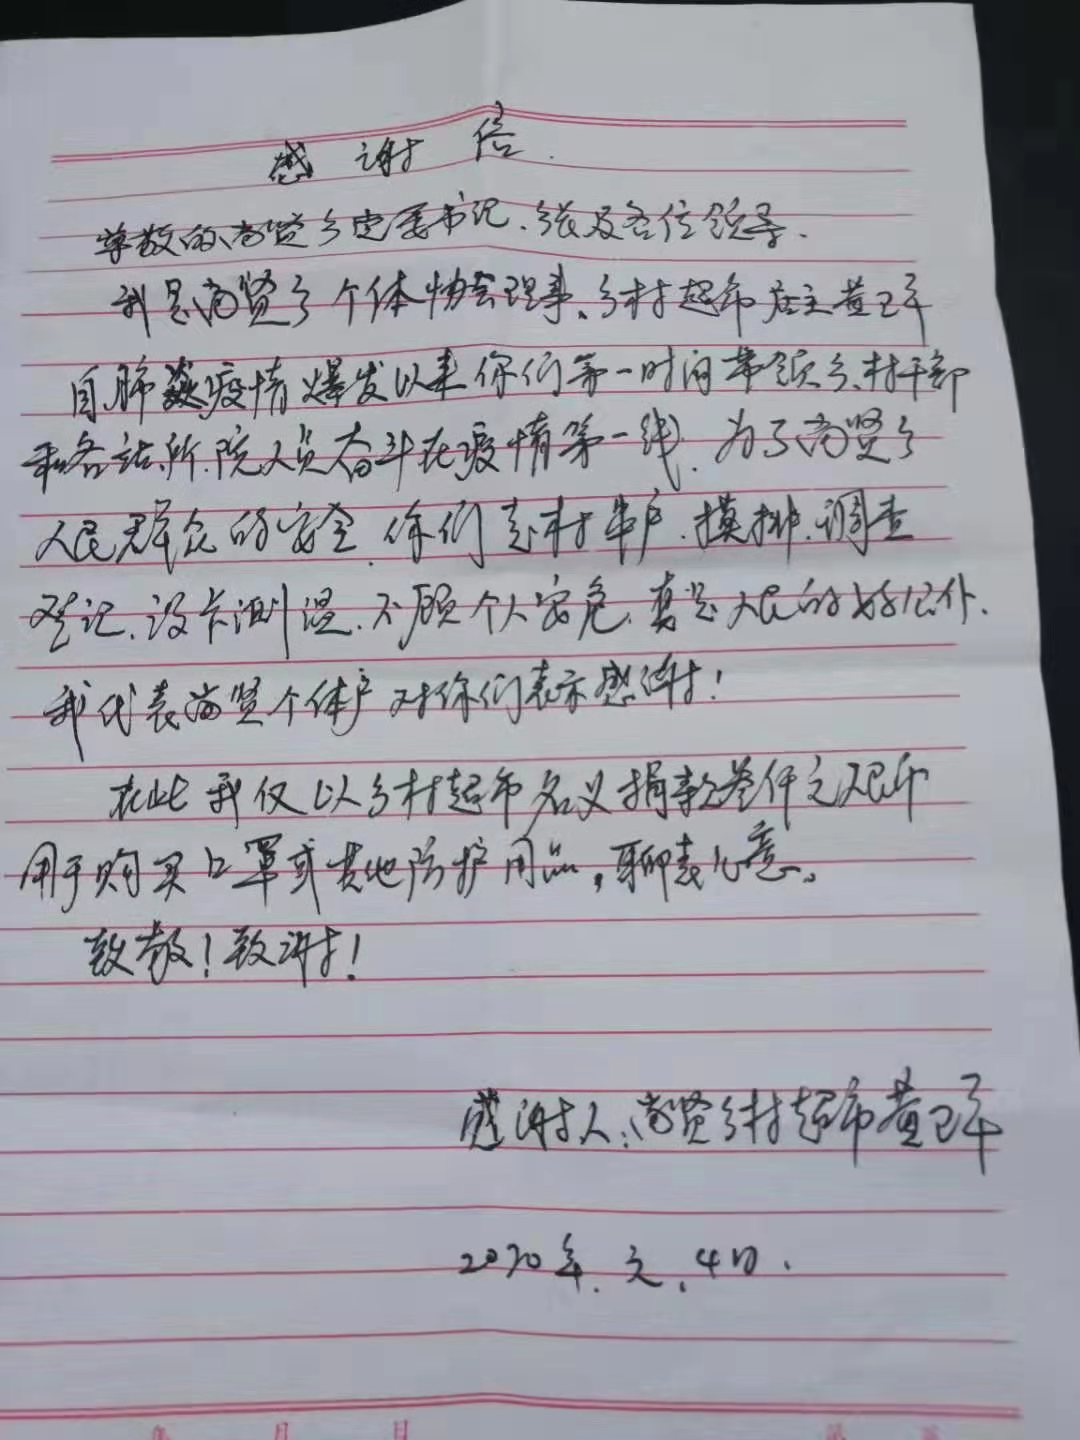 感谢信.
尊敬的尚贤乡党委书记、乡长及各位领导、
我是尚贤乡个体协会理事、乡村超市店主黄卫平
自肺炎疫情爆发以来你们第一时间带领乡、村干部
和各站、所、院人员奋斗在疫情第一线、为了尚贤乡
人民群众的安全、你们走村串户、摸排、调查
登记、设卡测温、不顾个人安危、真是人民的好公仆、
我代表尚贤个体户对你们表示感谢!
在此我仅以乡村超市名义捐款叁仟元人民币
用于购买口罩或其他防护用品，聊表心意。
致敬!致谢!
感谢人:尚贤乡村超市黄卫平
2020年、元、4日、
年 月 日 第 页